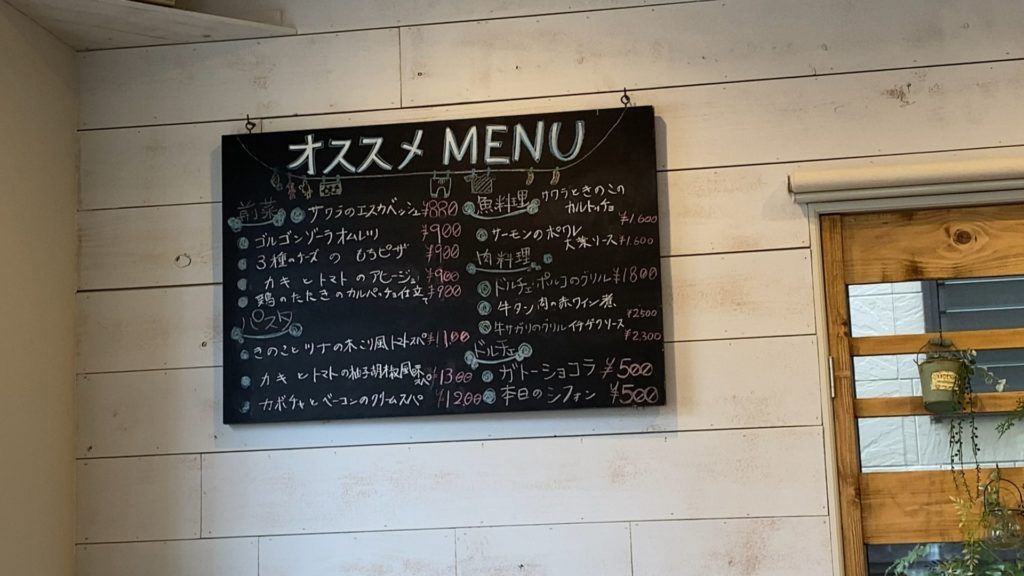 オススメ MENU
前菜
サワラのエスカベッシュ ¥880
ゴルゴンゾーラオムレツ ¥900
3種のチーズの もちピザ ¥900
カキとトマトのアヒージョ ¥900
鶏のたたきのカルパッチョ仕立 ¥900
パスタ
きのことツナの木こり風トマトスパ ¥1100
カキとトマトの柚子胡椒風味 スパ ¥1300
カボチャとベーコンのクリームスパ ¥1200
魚料理
サワラときのこの
カルトッチョ ¥1600
サーモンのポワレ
大葉ソース ¥1.600
肉料理
ドルチェポルコのグリル ¥1800
牛タン肉の赤ワイン煮 ¥2500
牛サガリのグリル イチヂクソース ¥2.300
ドルチェ
ガトーショコラ ¥500
本日のシフォン ¥500